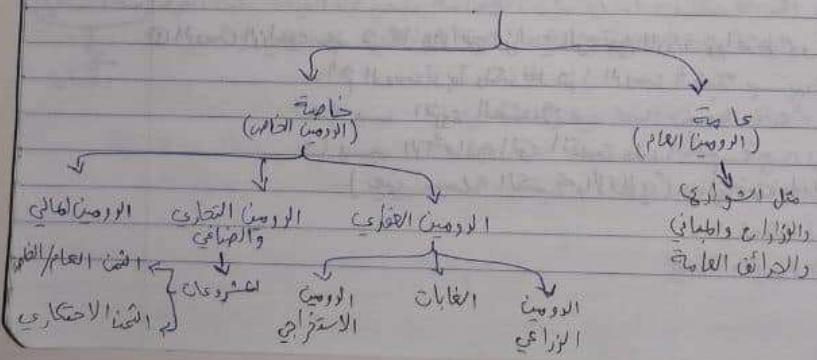 عامة
(الدومين العام)
مثل الشوارع
والوزارات والمباني
والحدائق العامة
خاصة
(الدومين الخاص)
الدومين العقاري
الدومين الزراعي
الغابات
الدومين الاستخراجي
الدومين التجاري
والصناعي
المشروعات
الثمن العام/
الثمن الاحتكاري
الدومين المالي